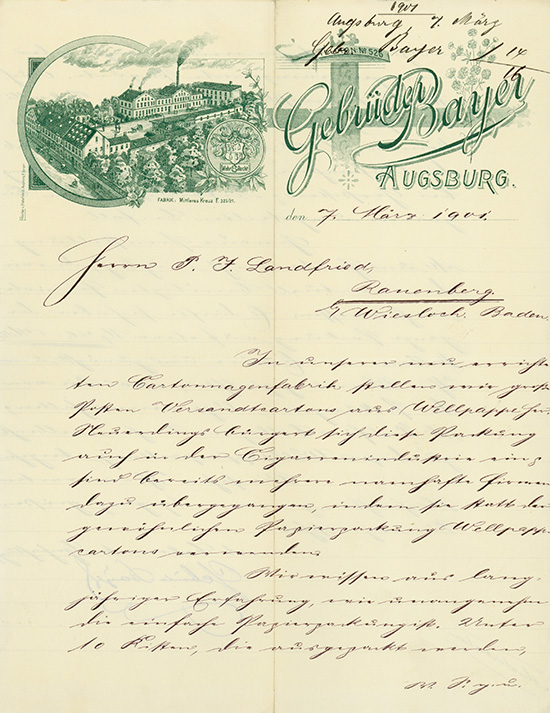 1901
Augsburg 7. März
Gebr. Bayer
14
16
No 526
Gebrüder Bayer
AUGSBURG.
FABRIK: Mittleres Kreuz F.
den 7. März 1901.
Herrn P. J. Landfried,
Rauenberg
b/ Wiesloch. Baden.
In unserer neu errichte-
ten Cartonnagenfabrik stellen wir große
Posten Versandtcartons aus Wellpappe her.
Neuerdings bürgert sich diese Packung
auch in der Cigarrenindustrie ein,
sind bereits mehrere namhafte Firmen
dazu übergegangen, indem sie statt der
gewöhnlichen Papierpackung Wellpapp-
cartons verwenden.
Wir wissen aus lang-
jähriger Erfahrung, wie unangenehm
die einfache Papierpackung ist. Unter
10 Kisten, die ausgepackt werden,